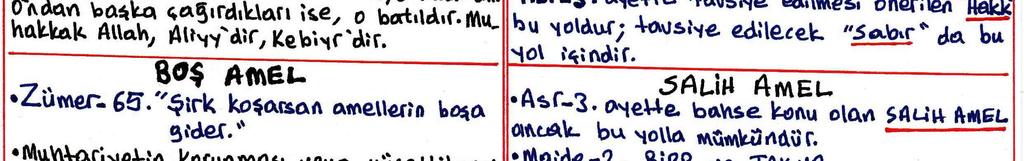 Ondan başka çağırdıkları ise, o batıldır. Mu_
hakkak Allah, Aliyy'dir, Kebiyr'dir.
BOŞ AMEL
•Zümer-65. "Şirk koşarsan amellerin boşa
gider."
•Muhtariyetin
edilmesi önerilen Hakk
bu yoldur; tavsiye edilecek "Sabır" da bu
yol içindir.
SALİH AMEL
•Asr-3. ayette bahse konu olan SALİH AMEL
ancak bu yolla mümkündür.